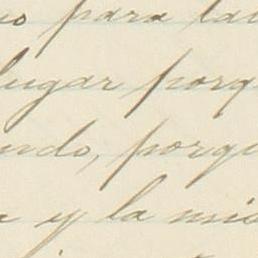 para
lugar porq
ndo, porqu
y la mis